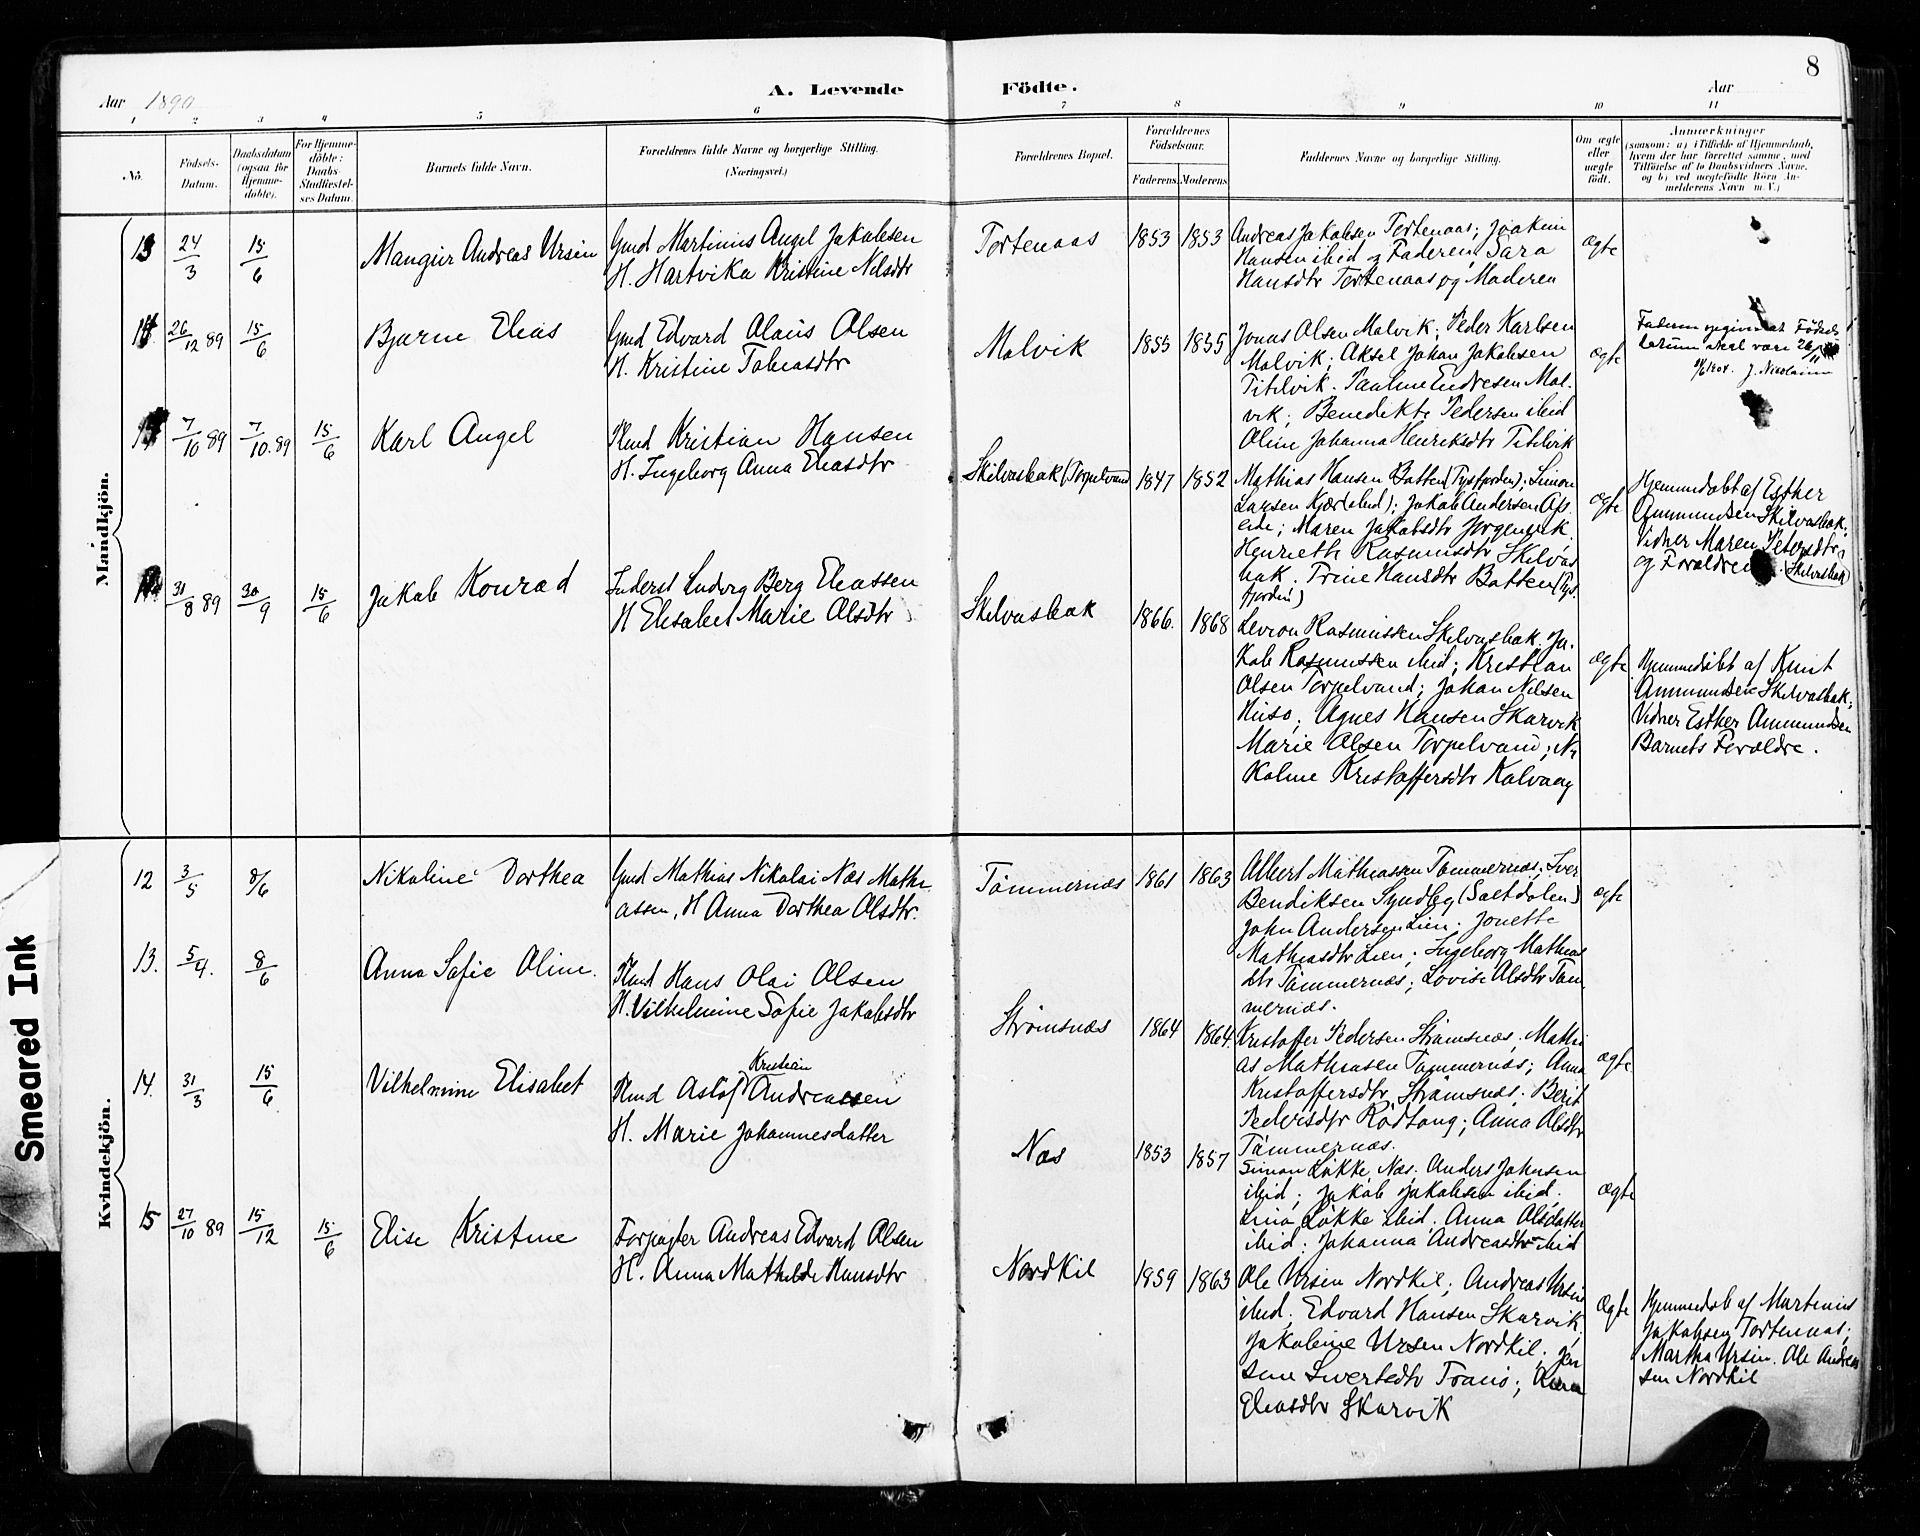 8
Aar 1890
A. Levende Födte.
Aar
1 2 3 4 5 6 7 8 9 10 11
No.
Födsels-
Datum.
Daabsdatum
(ogsaa for
Hjemme-
döbte).
For Hjemme-
döbte:
Daabs-
Stadfæstel-
ses Datum.
Barnets fulde Navn.
Forældrenes fulde Navne og borgerlige Stilling.
(Næringsvei.)
Forældrenes Bopæl.
Forældrenes
Födselsaar.
Faderens. Moderens.
Faddernes Navne og borgerlige Stilling.
Om ægte
eller
uægte
födt.
Anmærkninger
(saasom: a) i Tilfælde af Hjemmedaab,
hvem der har forrettet samme, med
Tilföielse af to Daabsvidners Navne,
og b) ved uægtefödte Börn An-
melderens Navn m. V.)
Mandkjön.
13 24/3 15/6 Andreas Ursin
Gmd Martinus Angel Jakobsen
H. Hartvika Kristine Nilsdtr
Tortenaas 1853 1853
Andreas Jakobsen Tortenaas; Joakim
Hansen ibid og Faderen, Sara
Hansdtr Tortenaas og Moderen
ægte
14 26/12 89 15/6 Bjarne Elias
Gmd Edvard Olaus Olsen
H. Kristine Tobiasdtr
Malvik 1853 1855
Jonas Olsen Malvik; Peder Karlsen
Malvik; Aksel Johan Jakobsen
Titilvik. Pauline Endresen Mal-
vik; Benedikte Pedersen ibid
Oline Johanna Henriksdtr Titilvik
ægte
Faderen opgiver at Födsels
datum skal være 26/11
1904. J. Nicolaisen
7/10 89 7/10.89 15/6 Karl Angel
Kristian Hansen
H. Ingeborg Anna Eliasdtr
Skilvasbak (Torpelvand) 1847 1852
Mathias Hansen Botten (Tysfjorden); Simon
Larsen Kjær (ibid); Jakob Andersen
Maren Jakobsdtr
Henriette Rasmusdtr Skilvas
bak. Trine Hansdtr Botten (Tys-
fjorden)
ægte
Hjemmedøbt af Esther
Ammundsen Skilvasbak;
Vidner Maren Petersdtr,
og Forældrene. (Skilvasbak)
31/8 89 30/9 15/6 Jakob Konrad
Inderst Ludvig Berg Eliassen
H Elisabet Marie Olsdtr
Skilvasbak 1866. 1868
Rasmussen Skilvasbak. Ja-
kob Rasmussen ibid; Kristian
Olsen Torpelvand; Johan Nilsen
Agnes Hansen Skarvik
Marie Olsen Torpelvand; Ni
koline Kristoffersdtr Kalvaag
ægte
Hjemmedøbt af Knut
Ammundsen Skilvasbak;
Vidner Esther Ammundsen
Barnets Forældre.
Kvindekjön.
12 3/5 8/6 Nikoline Dorthea
Gmd Mathias Nikolai Næs Mathi
assen, H Anna Dorthea Olsdtr.
Tömmernæs 1861 1863
Albert Mathiassen Tömmernæs; Iver
Bendiksen (Saltdalen)
John Andersen Lien; Jonette
Mathiasdtr Lien; Ingeborg Mathias
dtr Tömmernæs; Lovise Olsdtr Töm
mernæs.
ægte
13. 5/4. 8/6 Anna Sofie Oline.
Hans Olai Olsen
H. Vilhelmine Sofie Jakobsdtr
Strömsnæs 1864 1864.
Kristoffer Pedersen Strömsnæs. Mathi
as Mathiasen Tömmernæs; Anna
Kristoffersdtr Strömsnæs. Berit
Pedersdtr Rödtang; Anna Olsdtr
Tömmernæs.
ægte
14. 31/3 15/6 Vilhelmine Elisabet
Kristian
Andreassen
H. Marie Johannesdatter
Næs 1853 1857
Simon Lökke Næs. Anders Johnsen
ibid; Jakob Jakobsen ibid.
Lina Lökke ibid. Anna Olsdatter
ibid: Johanna Andreasdtr ibid
ægte
15 27/10 89 15/12 15/6 Elise Kristine
Forpagter Andreas Edvard Olsen
H. Anna Mathilde Hansdtr
Nordkil 1859 1863
Ole Ursin Nordkil; Andreas Ursin
ibid; Edvard Hansen Skarvik
Jakobine Ursin Nordkil. Jen
sine Sivertsdtr
Eliasdtr Skarvik
ægte
Hjemmedøb af Martinus
Jakobsen Tortenaas;
Martha Ursin. Ole Andrea
sen Nordkil
Smeared Ink